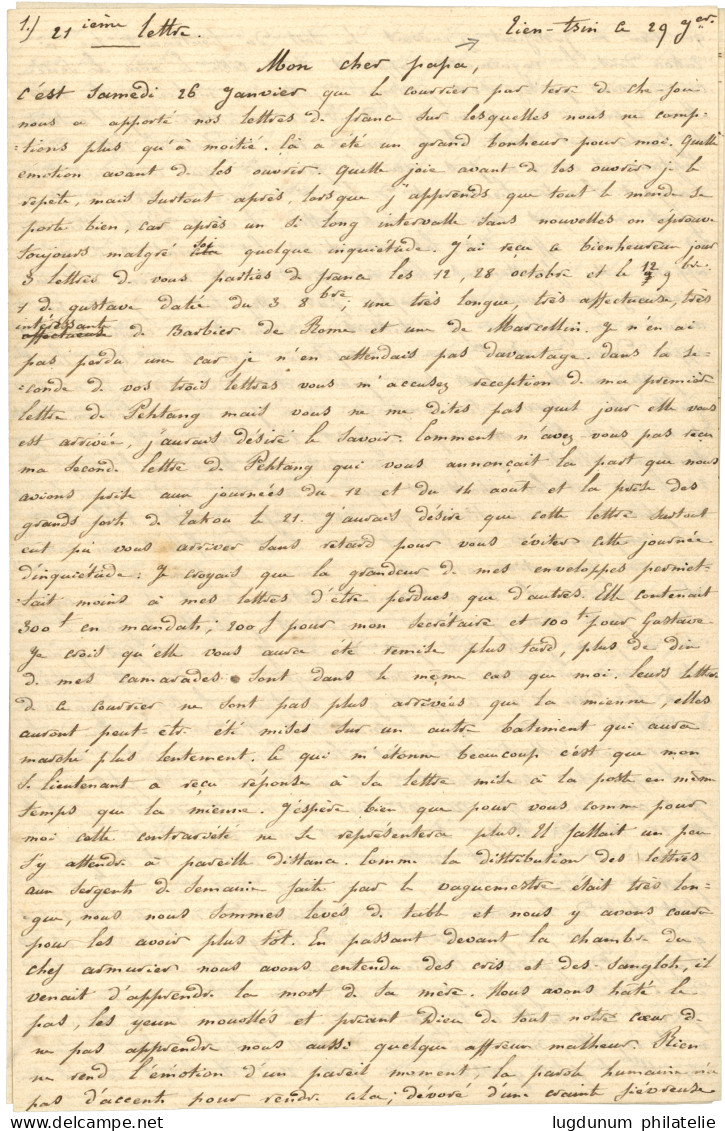 1.) 21 ième lettre. Tien-tsin le 29 Jer.
Mon cher papa,
C'est samedi 26 Janvier que le courrier par terre de che-fou
nous a apporté nos lettres de france sur lesquelles nous ne comp-
-tions plus qu'à moitié. Ca a été un grand bonheur pour moi. Quelle
émotion avant de les ouvrir. Quelle joie avant de les ouvrir je le
répète, mais surtout après, lorsque j'apprends que tout le monde se
porte bien, car après un si long intervalle sans nouvelles on éprouve
toujours malgré soi quelque inquiétude. J'ai reçu ce bienheureux jour
3 lettres de vous parties de france les 12, 28 octobre et le 12 9bre.
1 de gustave datée du 3 8bre; une très longue, très affectueuse, très
intéressante
affectueuse de Barbier de Rome et une de Marcellin. Je n'en ai
pas perdu une car je n'en attendais pas davantage. Dans la se-
-conde de vos trois lettres vous m'accusez reception de ma première
lettre de Pehtang mais vous ne me dites pas quel jour elle vous
est arrivée, j'aurais désiré le savoir. Comment n'avez-vous pas reçu
ma seconde lettre de Pehtang qui vous annonçait la part que nous
avions prise aux journées du 12 et du 14 août et la prise des
grands forts de Takou le 21. J'aurais désiré que cette lettre surtout
eut pu vous arriver sans retard pour vous éviter cette journée
d'inquiétude. Je croyais que la grandeur de mes enveloppes permet-
-tait moins à mes lettres d'être perdues que d'autres. Elle contenait
300f en mandats; 200f pour mon secrétaire et 100f pour Gustave
Je crois qu'elle vous aura été remise plus tard, plus de dix
de mes camarades sont dans le même cas que moi. leurs lettres
de ce courrier ne sont pas plus arrivées que la mienne, elles
auront peut-etr été mises sur un autre batiment qui aura
marché plus lentement. Ce qui m'étonne beaucoup c'est que mon
S. lieutenant a reçu réponse à sa lettre mise à la poste en même
temps que la mienne. J'espère bien que pour vous comme pour
moi cette contrariété ne se représentera plus. Il fallait un peu
s'y attendre à pareille distance. Comme la distribution des lettres
aux sergents de semaine faite par le vaguemestre était très lon-
gue, nous nous sommes levés de table et nous y avons couru
pour les avoir plus tôt. En passant devant la chambre du
chef armurier nous avons entendu des cris et des sanglots, il
venait d'apprendre la mort de sa mère. Nous avons hâté le
pas, les yeux mouillés et priant Dieu de tout notre cœur de
ne pas apprendre nous aussi quelque affreux malheur. Rien
ne rend l'émotion d'un pareil moment, la parole humaine n'a
pas d'accents pour rendre cela; dévoré d'une crainte fiévreuse
lugdunum philatelie